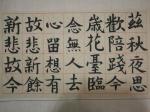 茲秋夜思
歡陪踐今
歲花臺臨
念無人去
心留想有
故悲新餘
新悲故今